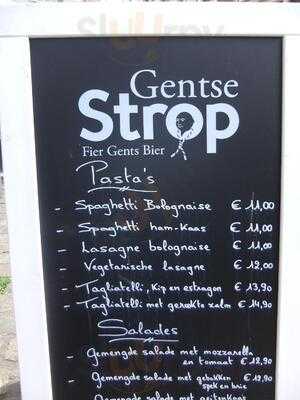 Gentse
Strop
Fier Gents Bier
Pasta's
- Spaghetti Bolognaise € 11,00
- Spaghetti ham-kaas € 11,00
- Lasagne bolognaise € 11,00
- Vegetarische lasagne € 12,00
- Tagliatelli, kip en estragon € 13,90
- Tagliatelli met gerookte zalm € 14,90
Salades
- Gemengde salade met mozzarella
en tomaat € 12,90
- Gemengde salade met gebakken
spek en brie € 12,90
Gemengde salade met geitenkaas